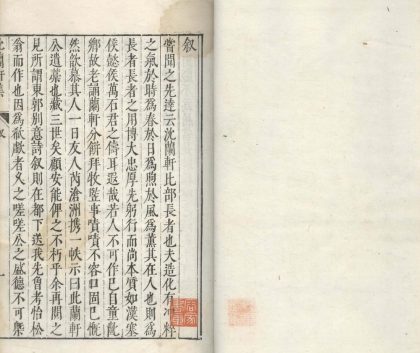 叙
嘗聞之先達云沈蘭軒比部長者也夫造化有
之氣於時為春於日為煦於風為薰其在人也則為
長者長者之用博大忠厚先躬行而尚本質如漢塞
侯懿侯萬石君之儔耳遐哉若人不可作已自童
鄉故老誦蘭軒分餅拜牧監事嘖嘖不容口固已慨
然欲慕其人一日友人芮滄洲携一帙示曰此蘭軒
公遺藁也藏三世矣顧安能俾之不朽乎余再閱之
見所謂東郭別意詩叙則在都下送我先曾考怡松
翁而作也因為欷歔者久之嗟嗟公之盛德不可槩